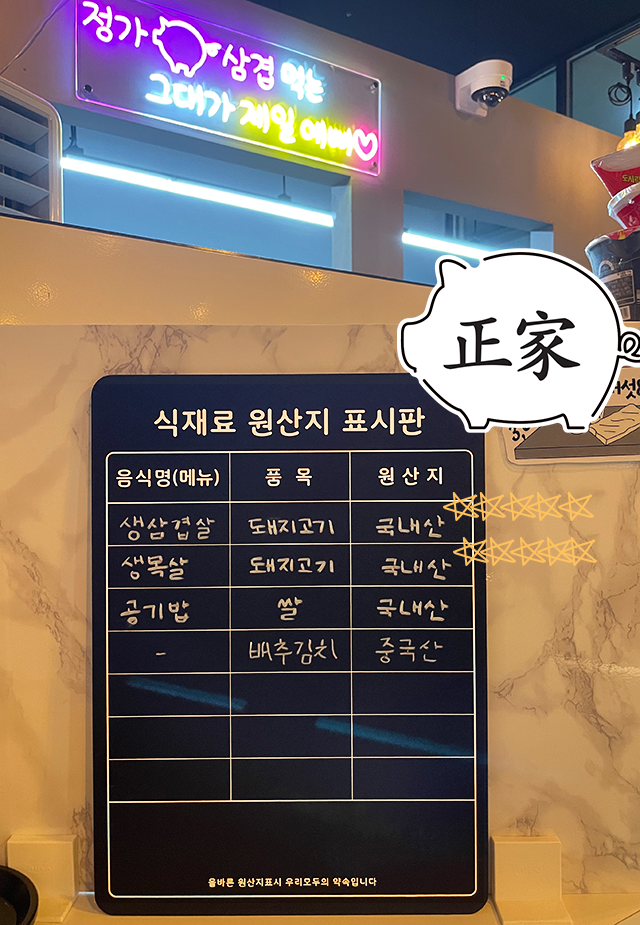 정가 삼겹 먹는
그대가 제일 예뻐♡
正家
식재료 원산지 표시판
음식명(메뉴) 품 목 원 산 지
생삼겹살 돼지고기 국내산 ☆☆☆☆☆
생목살 돼지고기 국내산 ☆☆☆☆☆
공기밥 쌀 국내산
- 배추김치 중국산
올바른 원산지표시 우리모두의 약속입니다